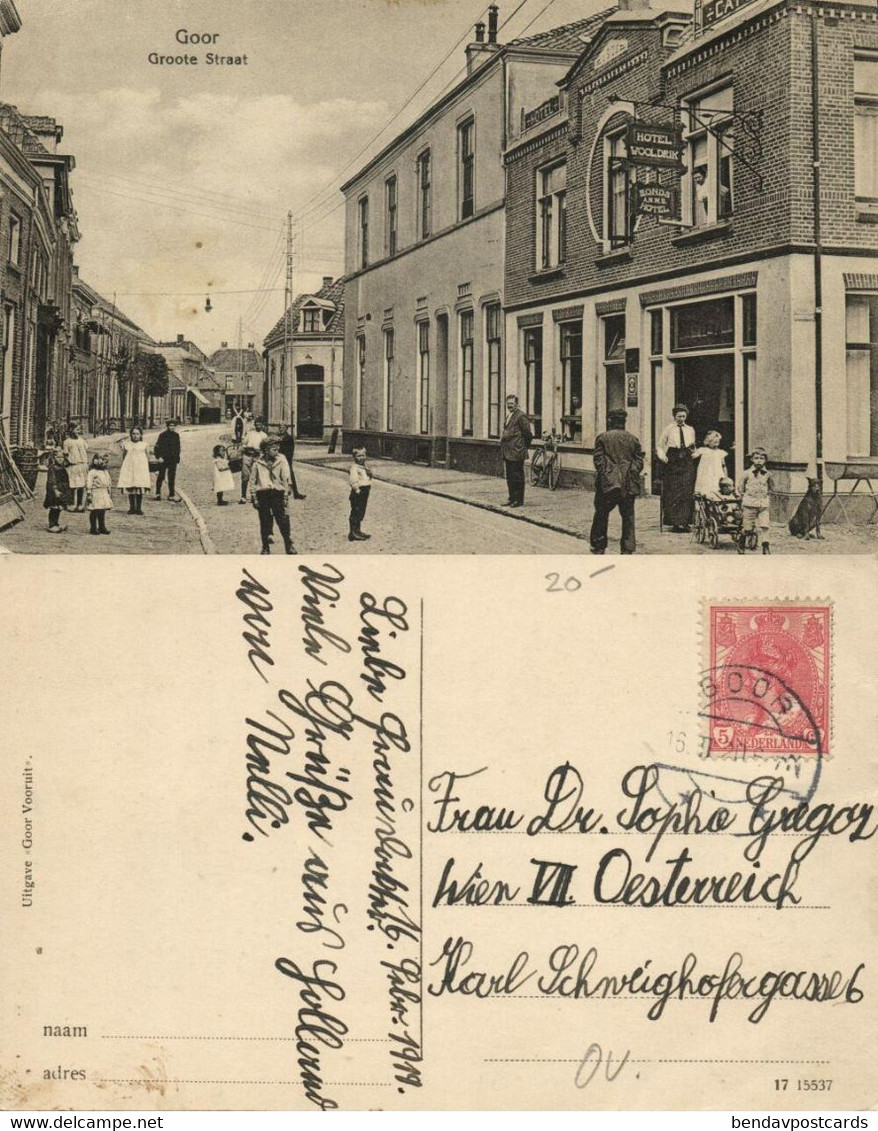 Goor
Groote Straat
HOTEL
CAFÉ
HOTEL
WOOLDRIK
BONDS
A.N.W.B.
HOTEL
Liebe Frau Doktor. 16. Febr. 1919.
Viele Grüße aus Holland
von Nelli.
Uitgave «Goor Vooruit».
naam
adres
20-
GOOR
16.
5 c
NEDERLAND
Frau Dr. Sophie Gregor
Wien VII. Oesterreich
Karl Schweighofergasse 6
OV.
17 15537
bendavpostcards.com